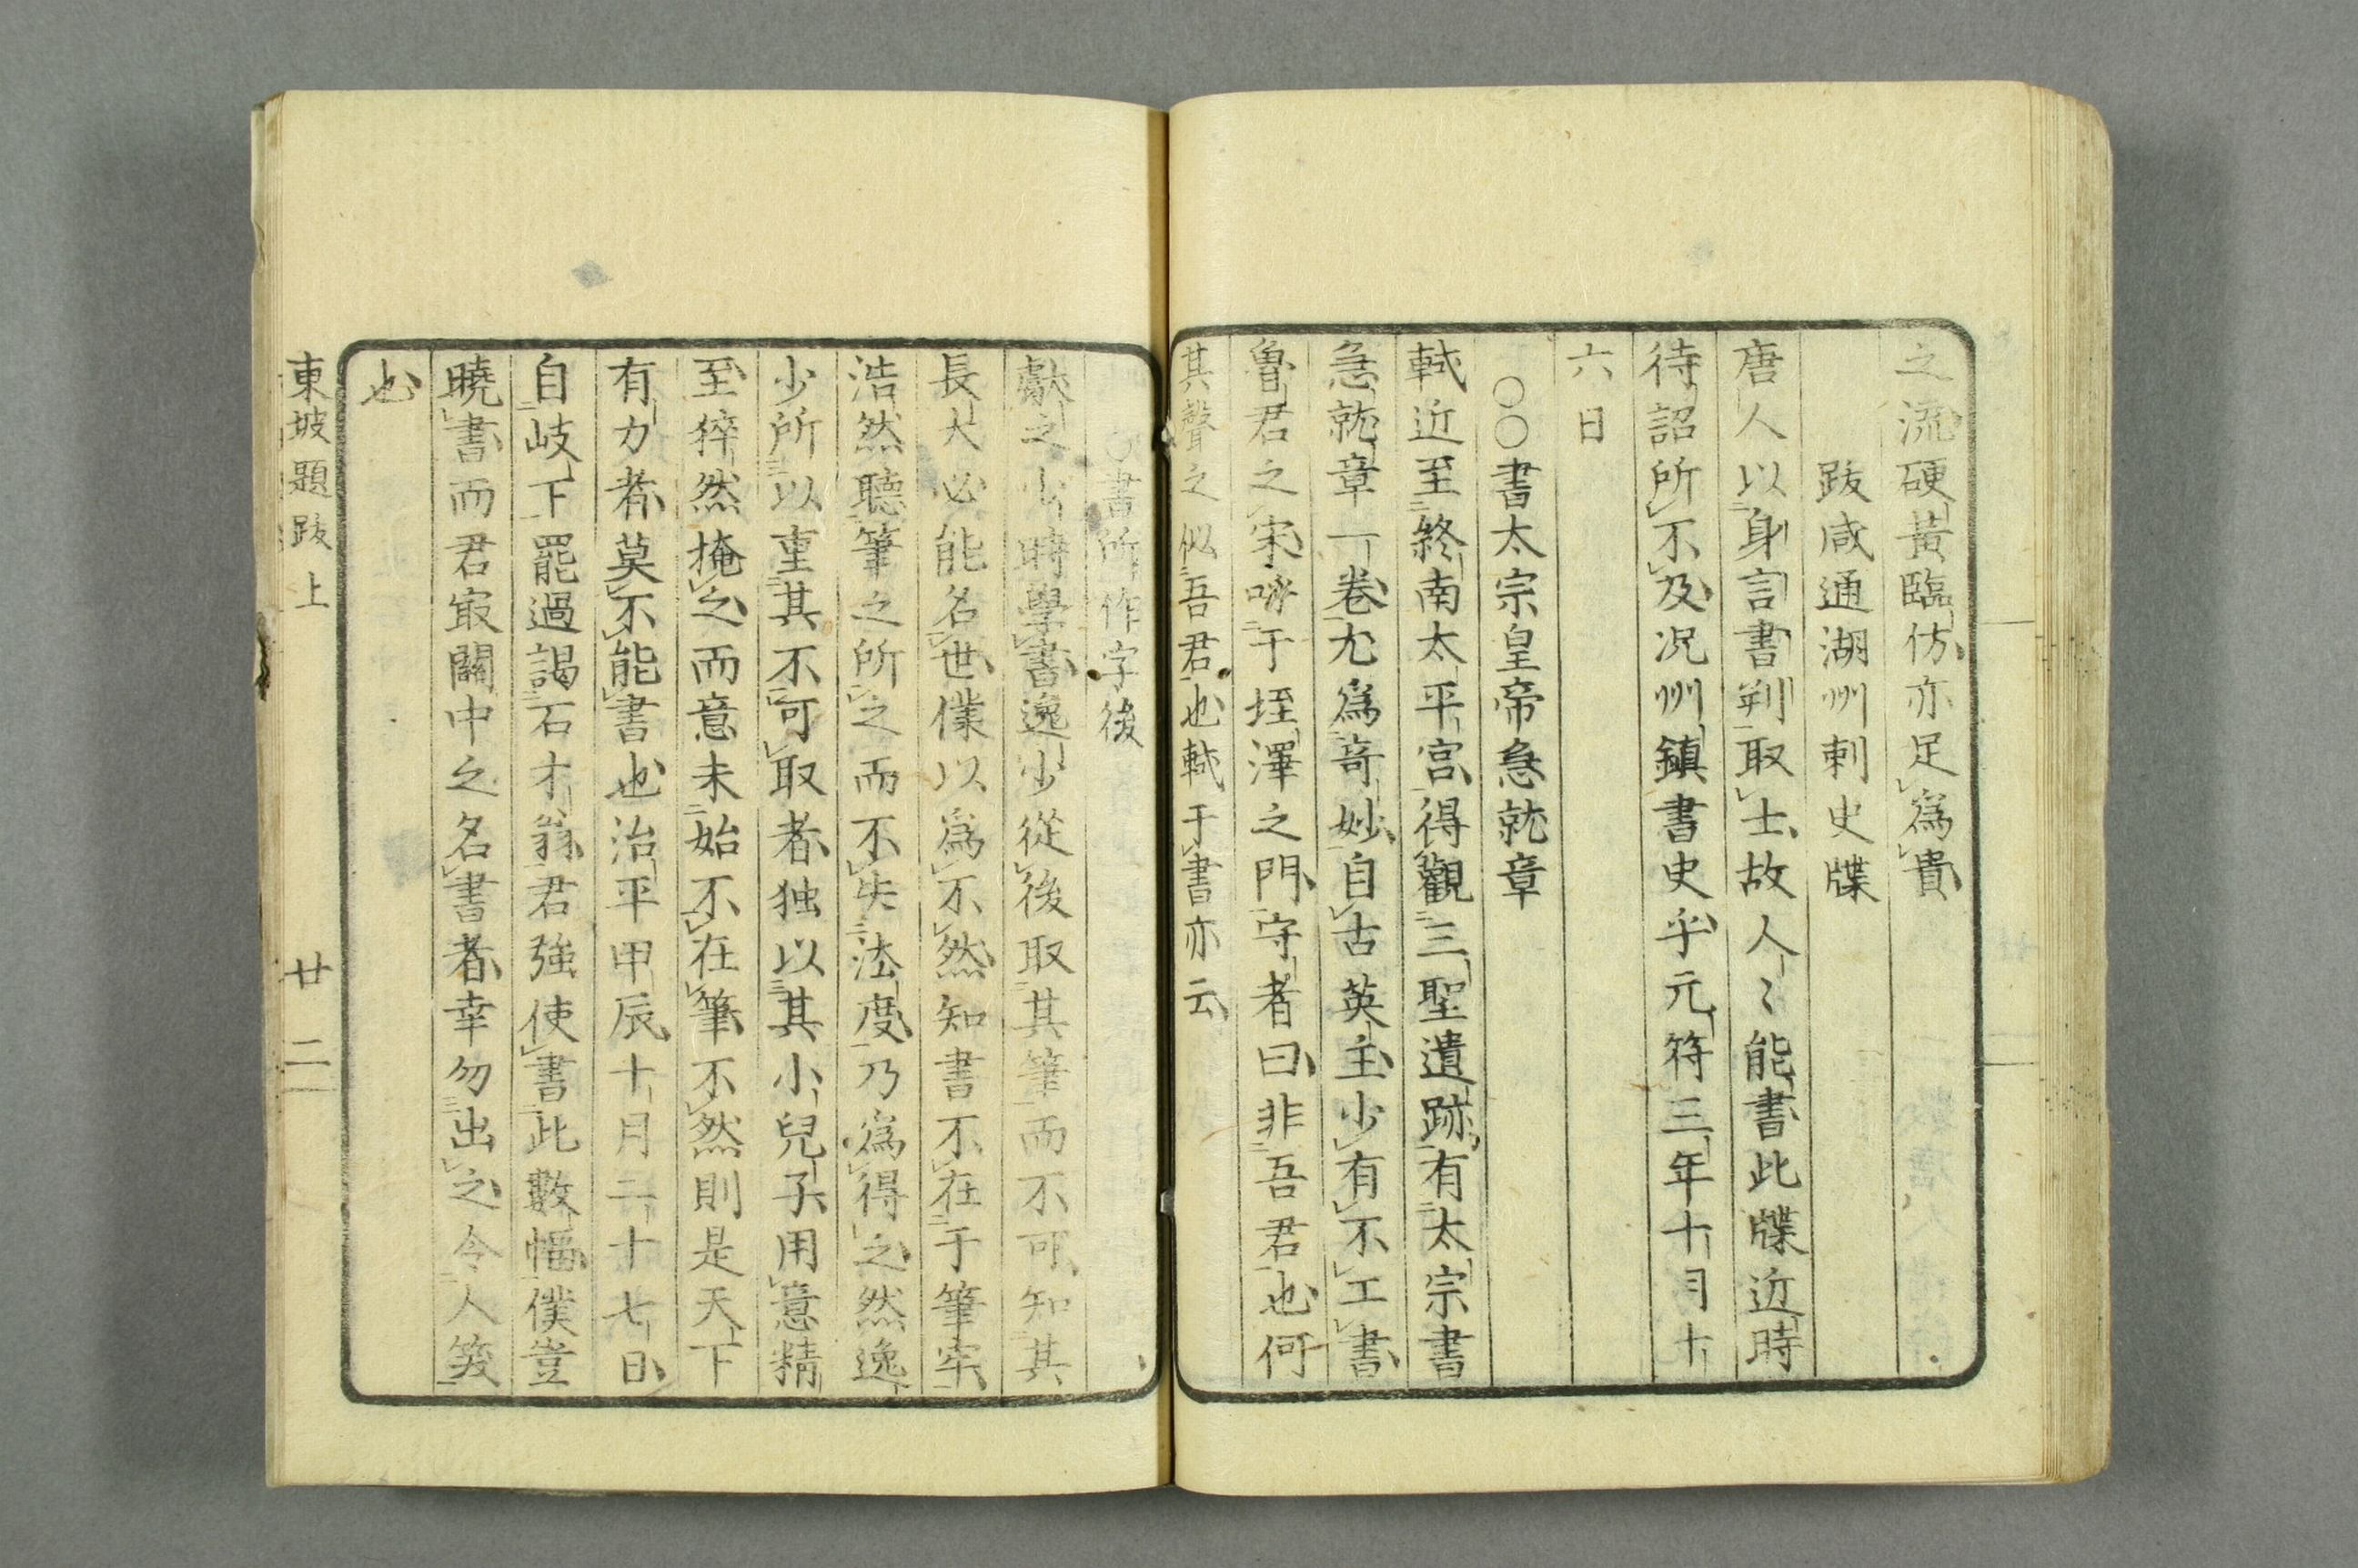 之流硬黃臨仿亦足為貴
跋咸通湖州刺史牒
唐人以身言書判取士故人〻能書此牒近時
待詔所不及况州鎮書史乎元符三年十月十
六日
〇〇書太宗皇帝急就章
軾近至終南太平宮得觀三聖遺跡有太宗書
急就章一卷尤為竒妙自古英主少有不工書
魯君之宋呼于垤澤之門守者曰非吾君也何
其聲之似吾君也軾于書亦云
〇書所作字後
獻之少時學書逸少從後取其筆而不可知其
長大必能名世僕以為不然知書不在于筆牢
浩然聽筆之所之而不失法度乃為得之然逸
少所以重其不可取者独以其小兒子用意精
至猝然掩之而意未始不在筆不然則是天下
有力者莫不能書也治平甲辰十月二十七日
自岐下罷過謁石才翁君強使書此數幅僕豈
曉書而君㝡關中之名書者幸勿出之令人笑
也
東坡題跋上
廿二